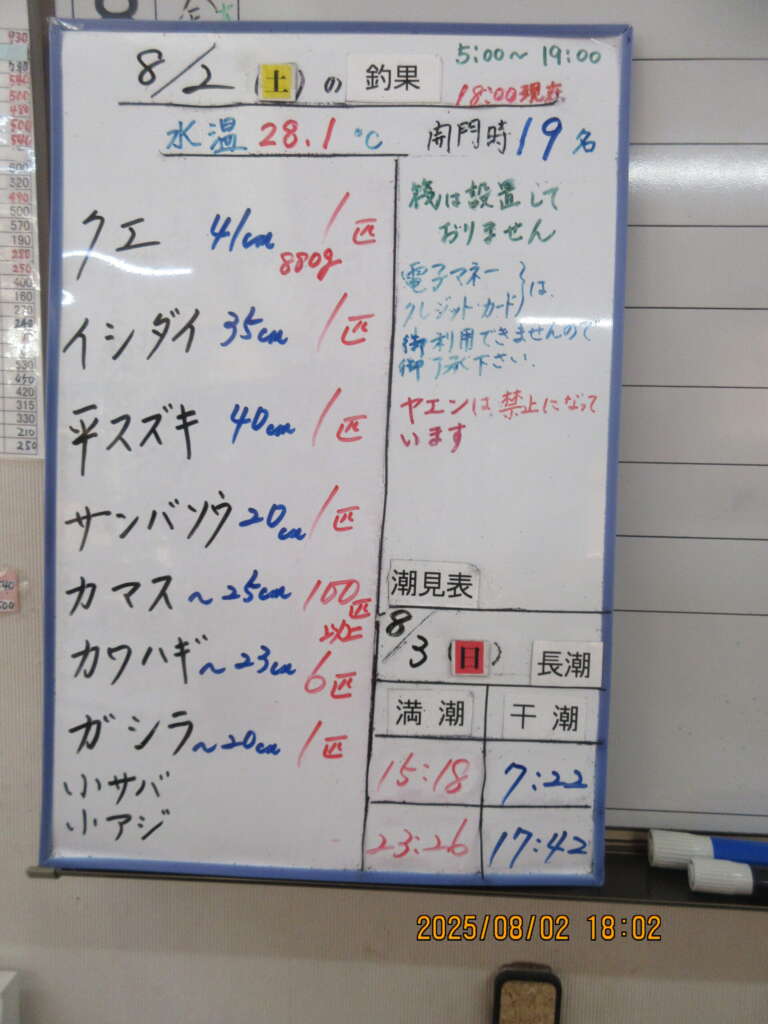 8/2(土)の釣果
5:00～19:00
18:00現在
水温 28.1℃ 開門時19名
クエ 41cm 880g 1匹
イシダイ 35cm 1匹
平スズキ 40cm 1匹
サンバソウ 20cm 1匹
カマス ～25cm 100匹以上
カワハギ ～23cm 6匹
ガシラ ～20cm 1匹
小サバ
小アジ
筏は設置して
おりません
電子マネー
クレジット・カード}は、
御利用できませんので
御了承下さい.
ヤエンは禁止になって
います
潮見表
8/3(日) 長潮
満潮 干潮
15:18 7:22
23:26 17:42
2025/08/02 18:02